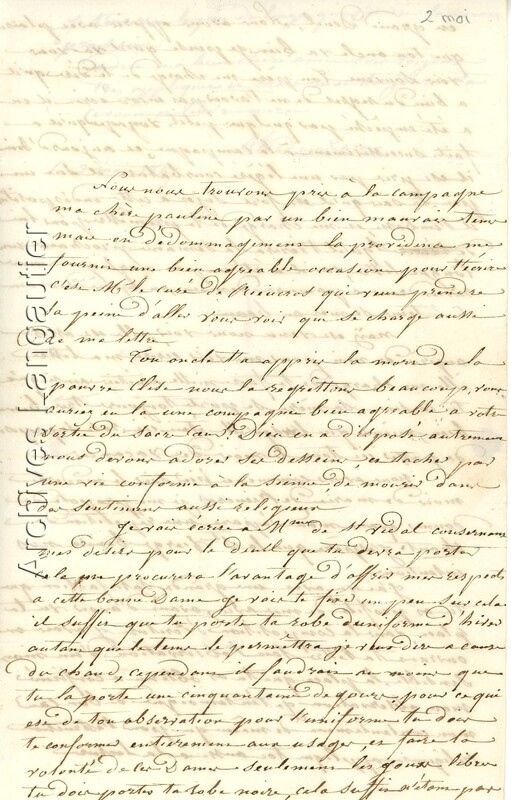 2 mai
Nous nous trouvons pris à la campagne
ma chère pauline par un bien mauvais tems
mais en dédommagement la providence me
fournit une bien agreable occasion pour t'écrire
c'est Mr le curé de Rieucros qui veut prendre
la peine d'aller vous voir qui se charge aussi
de ma lettre
Ton oncle t'a appris la mort de la
pauvre Elise nous la regrêttons beaucoup, vous
auriez eu la une compagnie bien agreable a votre
sortie du sacre Cœur, Dieu en a disposé autrement
nous devons adorer ses desseins, et tacher par
une vie conforme à la sienne, de mourir dans
des sentimens aussi religieux
Je vais écrire a Mme de St vidal concernant
mes desirs pour le deuil que tu devra porter
cela me procurera l'avantage d'offrir mes respects
a cette bonne Dame je vais te fixer un peu sur cela
il suffit que tu porte ta robe d'uniforme d'hiver
autant que le tems le permêttra je veux dire a cause
du chaud, cependant il faudrait au moins que
tu la porte une cinquantaine de jours, pour ce qui
est de ton observation pour l'uniforme tu dois
te conformer entierement aux usages, et faire la
volonté de ces Dames seulement les jours libres
tu dois porter ta robe noire, cela suffit n'étant pas
Archives Langautier